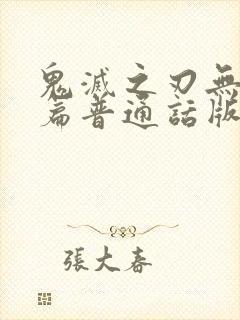 鬼滅之刃無
篇普通話版
張大春